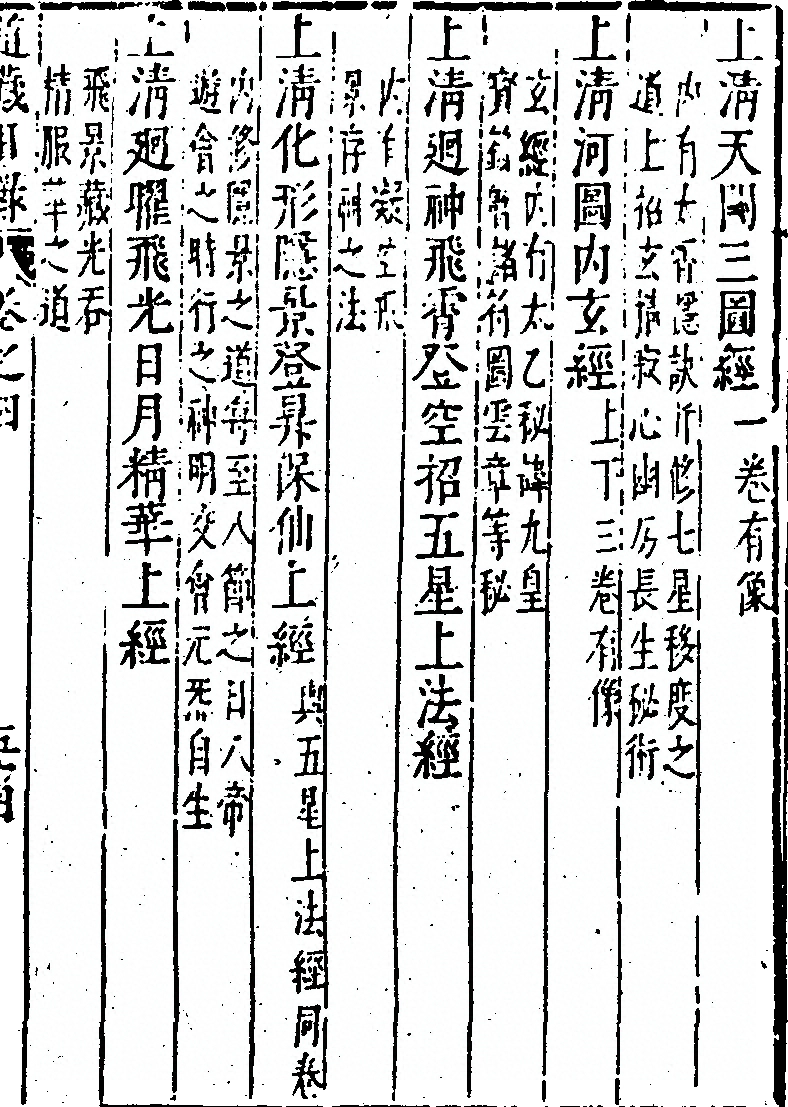 上清天關三圖經一卷有像
內有太霄隱訣行修七星移度之
道上招玄精寂心幽房長生祕術
上清河圖內玄經上下三卷有像
玄經內有太乙秘諱九皇
寶籙智諸符圖雲章等秘
上清迴神飛霄登空招五星上法經
內有凝空
景存神之法
上清化形隱景登昇保仙上經與五星上法經同卷
內修隱景之道每至八節之日八帝
遊會之時行之神明交會元炁自生
上清迴曜飛光日月精華上經
飛景藏光吞
精服華之道
道藏目錄卷之四